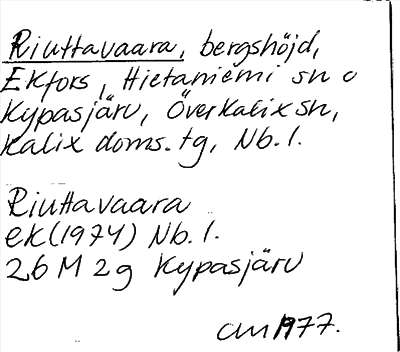 Riuttavaara, bergshöjd,
Ekfors, Hietaniemi sn o
Kypasjärv, Överkalix sn,
Kalix doms.tg, Nb.l.
Riuttavaara
ek(1974) Nb.l.
26 M 2g Kypasjärv
CM 1977.